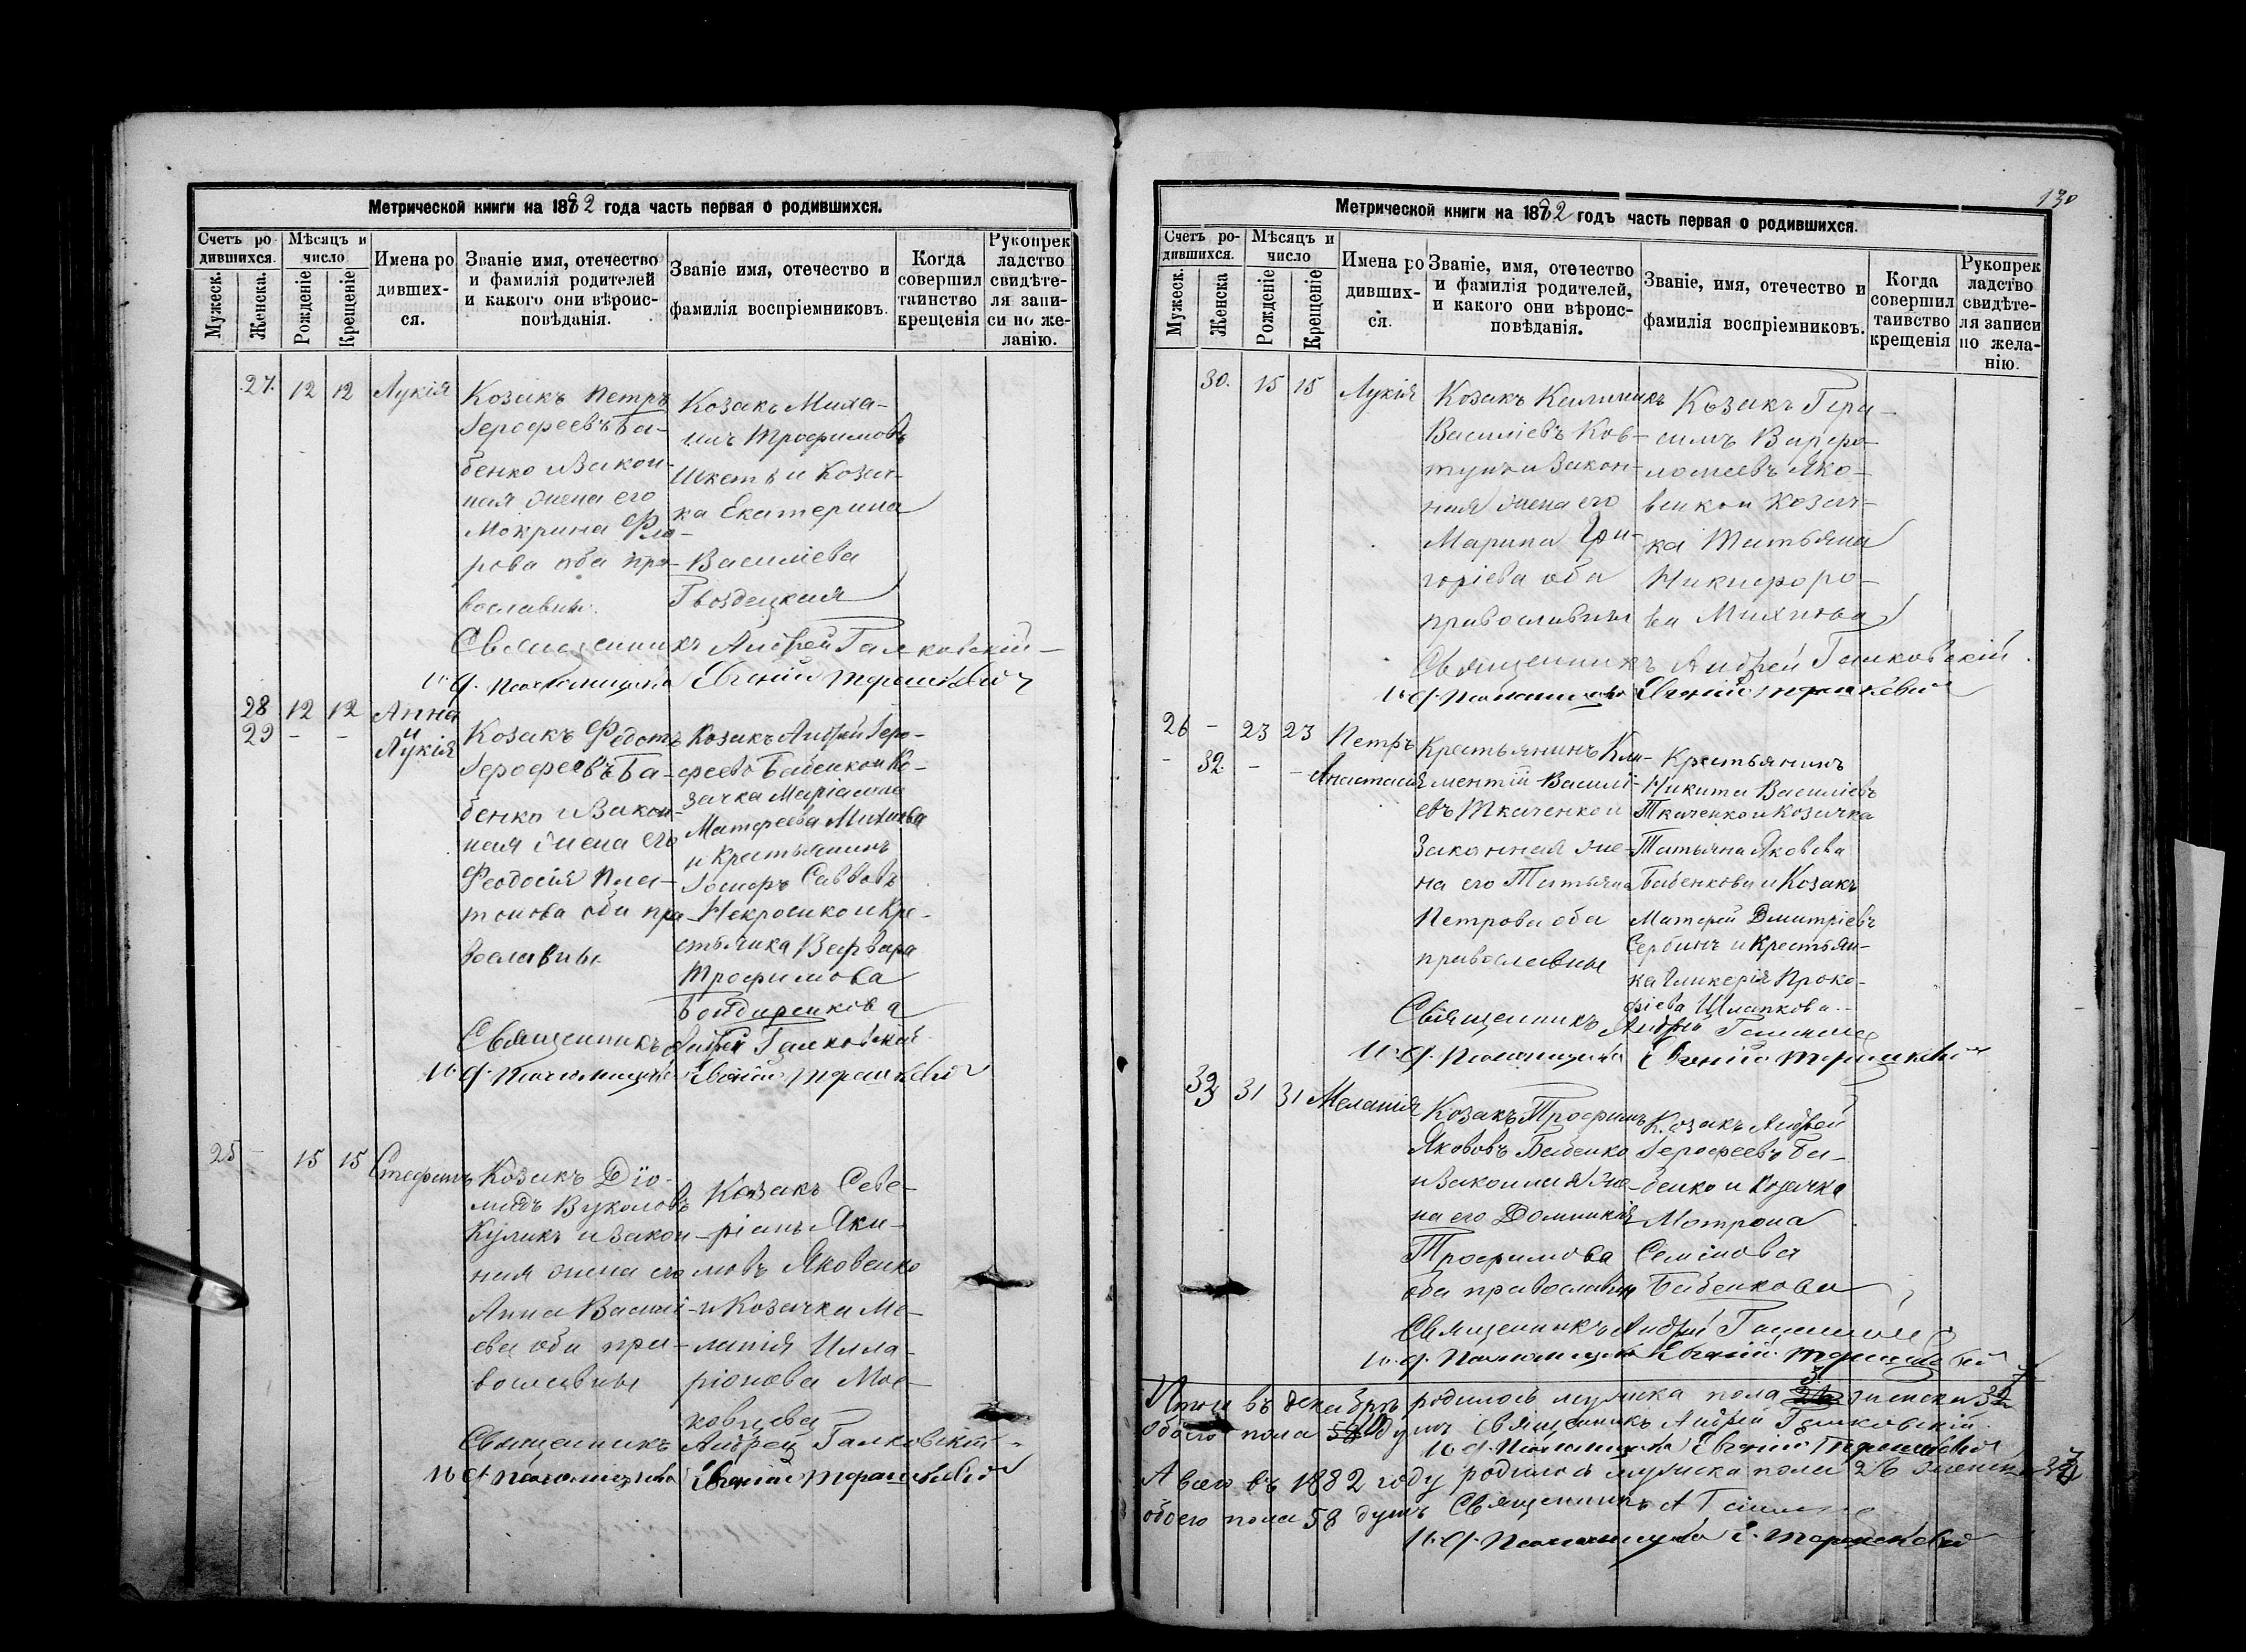 Метрической книги на 1882 года часть первая о родившихся.
Счетъ ро-
дившихся.
Мужеск.
Женска.
Мѣсяцъ и
число
Рожденіе
Крещеніе
Имена ро
дивших-
ся.
Званіе имя, отечество
и фамилія родителей
и какого они вѣроис-
повѣданія.
Званіе имя, отечество и
фамилія воспріемниковъ.
Когда
совершил
таинство
крещенія
Рукопрек
ладство
свидѣте-
ля запи-
си по же-
ланію.
27. 12 12 Лукія
Козакъ Петръ
Іерофеевъ Ба-
бенко и закон-
ная жена его
Мокрина Фло-
рова оба пра-
вославны.
Козакъ Миха-
илъ Трофимовъ
и Козач-
ка Екатерина
Василіева
Гвоздецкая
Священникъ Андрей Галковскій
И. д. Псаломщика Евгеній
28 12 12 Анна
29 - - и
Лукія
Козакъ Федотъ
Іерофеевъ Ба-
бенко и закон-
ная жена его
Феодосія Пла-
тонова оба пра-
вославны.
Козакъ Андрей Іеро-
феевъ Бабенко и Ко-
зачка Маріамна
Матфеева Михнова
и Крестьянинъ
Іосифъ Саввовъ
Некросико и Кре-
стьянка Варвара
Трофимова
Бондаренкова
Священникъ Андрей Галковскій
И. д. Псаломщика Евгеній
25 - 15 15 Стефанъ
Козакъ Діо-
мидъ Вуколовъ
Куликъ и закон-
ная жена его
Анна Василі-
ева оба пра-
вославны
Козакъ Севе-
ріанъ Яки-
мовъ Яковенко
и Козачка Ме-
ланія Илла-
ріонова Мос-
ковцева
Священникъ Андрей Галковскій
И. д. Псаломщика Евгеній
130
Метрической книги на 1882 годъ часть первая о родившихся.
Счетъ ро-
дившихся.
Мужеск.
Женска
Мѣсяцъ и
число
Рожденіе
Крещеніе
Имена ро
дивших-
ся.
Званіе, имя, отечество
и фамилія родителей,
и какого они вѣроис-
повѣданія.
Званіе, имя, отечество и
фамилія воспріемниковъ.
Когда
совершил
таивство
крещенія
Рукопрек
ладство
свидѣте-
ля записи
по жела-
нію.
30. 15 15 Лукія
Козакъ Калиникъ
Василіевъ Ков-
тунъ и закон-
ная жена его
Марина Гри-
горіева оба
православны
Козакъ Гера-
симъ Варфо-
ломеевъ Яко-
венко и Козач-
ка Татьяна
Никифоро-
ва Михнова
Священникъ Андрей Галковскій
И. д. Псаломщика Евгеній
26 - 23 23 Петръ
- 32. - - Анастасія
Крестьянинъ Кли-
ментій Василі-
евъ Ткаченко и
законная же-
на его Татьяна
Петрова оба
православные
Крестьянинъ
Никита Василіевъ
Ткаченко и Козачка
Татьяна Яковлева
Бабенкова и Козакъ
Матфей Дмитріевъ
Сербинъ и Крестьян-
ка Гликерія Проко-
фіева Шлапкова.
Священникъ Андрей
И. д. Псаломщика Евгеній
33 31 31 Меланія
Козакъ Трофимъ
Якововъ Бабенко
и законная же-
на его Домникія
Трофимова
оба православны
Козакъ Андрей
Іерофеевъ Ба-
бенко и Козачка
Мотрона
Семенова
Бабенкова
Священникъ Андрей
И. д. Псаломщика Евгеній
Итого въ декабрѣ родилось мужска пола женска
обоего пола душъ Священникъ Андрей Галковскій
И. д. Псаломщика Евгеній
А всего въ 1882 году родилось мужска пола 26 женска
обоего пола 58 душъ Священникъ А
И. д. Псаломщика Е.